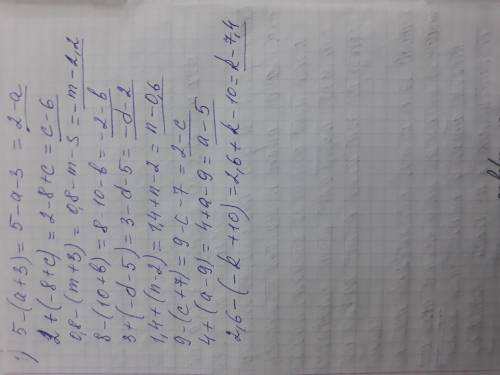 1) 5-(a+3) = 5-a-3 = 2-a
2+(-8+c) = 2-8+c = c-6
0,8-(m+3) = 0,8-m-3 = -m-2,2
8-(10+b) = 8-10-b = -2-b
3+(-d-5) = 3-d-5 = -d-2
1,4+(n-2) = 1,4+n-2 = n-0,6
9-(c+7) = 9-c-7 = 2-c
4+(a-9) = 4+a-9 = a-5
2,6-(-k+10) = 2,6+k-10 = k-7,4